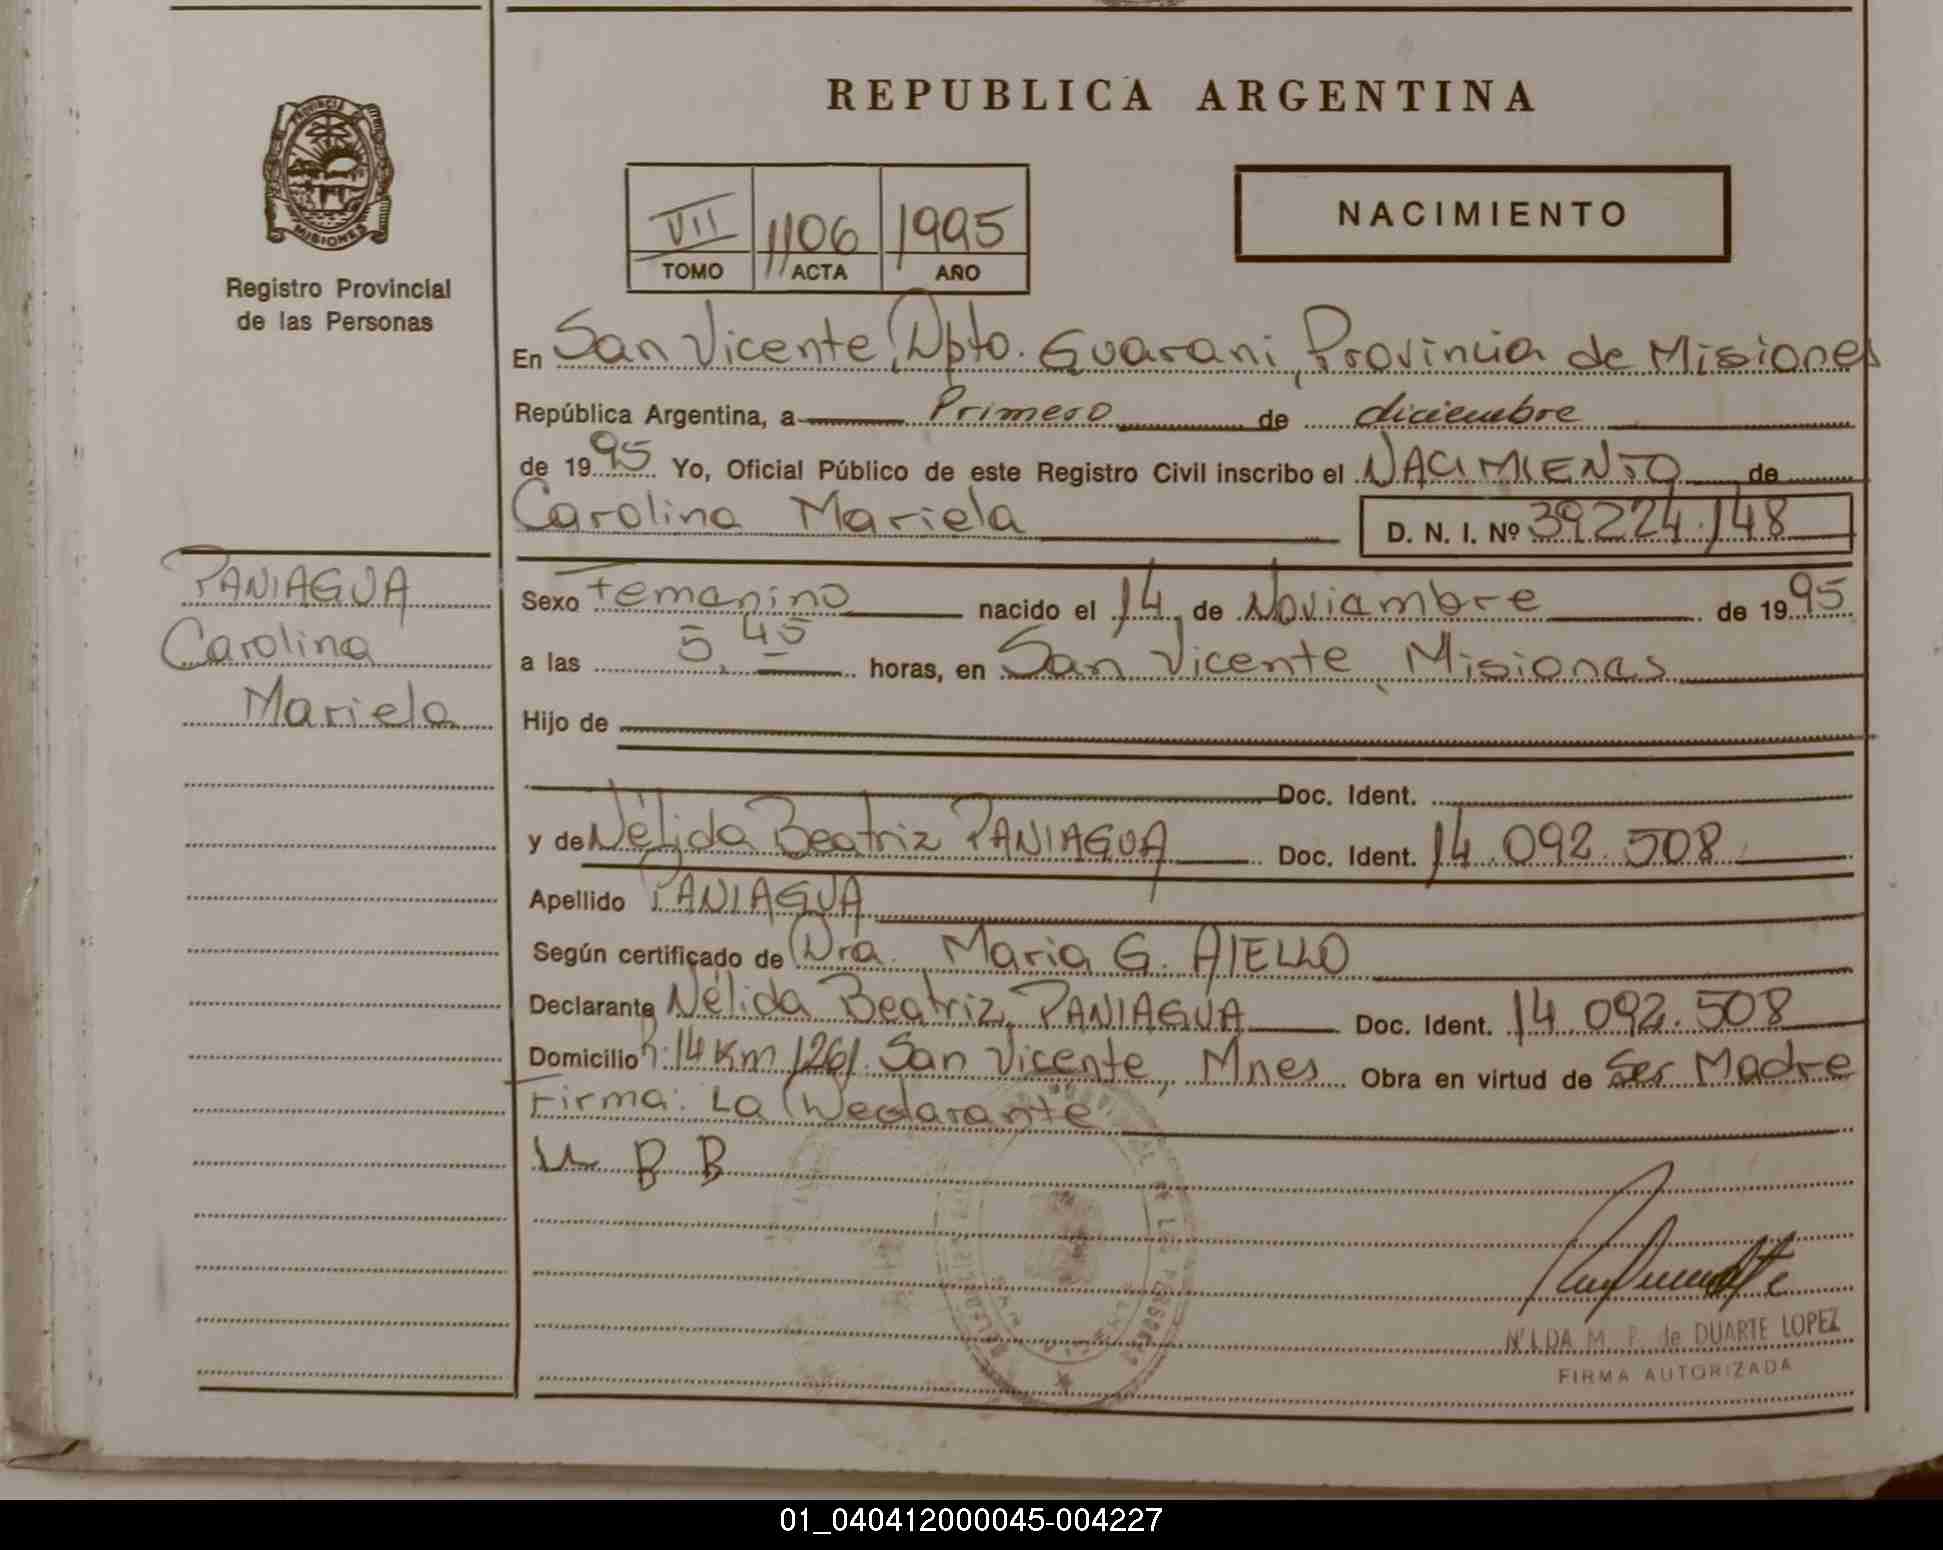 REPUBLICA ARGENTINA
PROVINCIA
MISIONES
Registro Provincial
de las Personas
VII 1106 1995
TOMO ACTA AÑO
NACIMIENTO
En San Vicente, Dpto. Guarani, Provincia de Misiones
República Argentina, a Primero de diciembre
de 1995 Yo, Oficial Público de este Registro Civil inscribo el NACIMIENTO de
Carolina Mariela D. N. I. Nº 39.224.148
PANIAGUA
Carolina
Mariela
Sexo Femenino nacido el 14 de Noviembre de 1995
a las 5,45 horas, en San Vicente, Misiones
Hijo de
Doc. Ident.
y de Nélida Beatriz PANIAGUA Doc. Ident. 14.092.508
Apellido PANIAGUA
Según certificado de Dra. Maria G. AIELLO
Declarante Nélida Beatriz PANIAGUA Doc. Ident. 14.092.508
Domicilio 14 Km 1261 San Vicente, Mnes Obra en virtud de Ser Madre
Firma: La Declarante
B B
de DUARTE LOPEZ
FIRMA AUTORIZADA
01_040412000045-004227